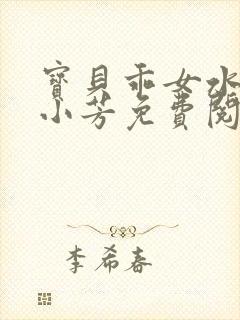 寶貝乖女水
小芳免費閱
李希春